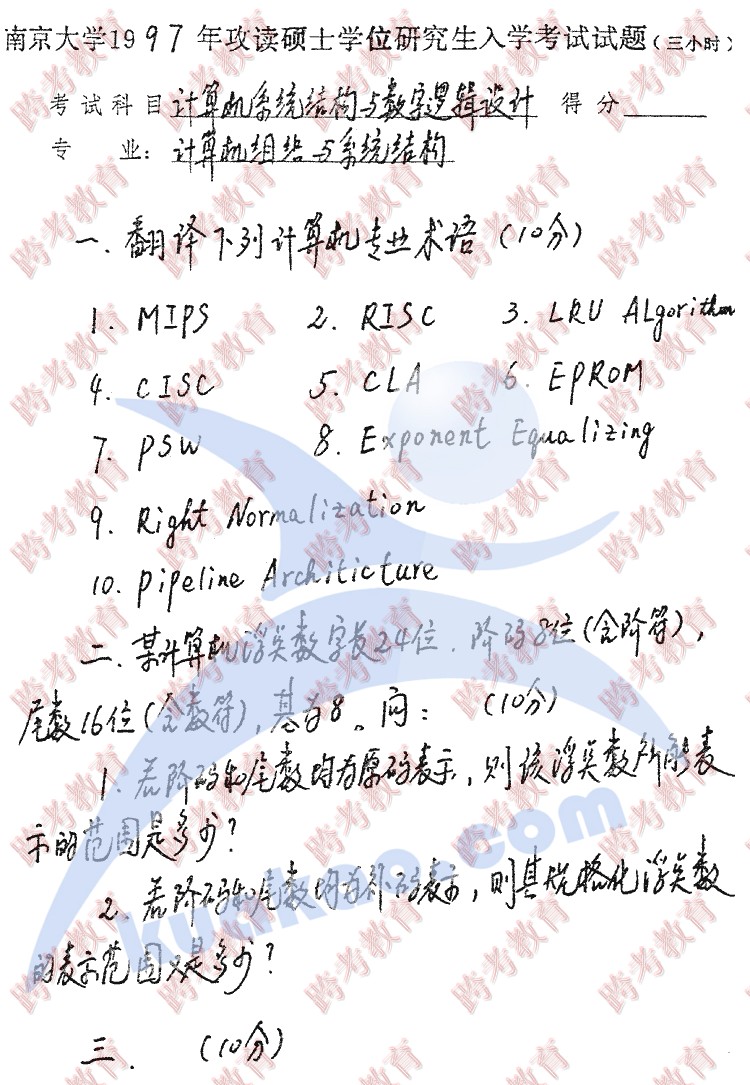 南京大学1997年攻读硕士学位研究生入学考试试题(三小时)
考试科目 计算机系统结构与数字逻辑设计 得分
专 业: 计算机组织与系统结构
一. 翻译下列计算机专业术语 (10分)
1. MIPS 2. RISC 3. LRU ALgorithm
4. CISC 5. CLA 6. EPROM
7. PSW 8. Exponent Equalizing
9. Right Normalization
10. Pipeline Architicture
二. 某计算机浮点数字长24位. 阶码8位(含阶符),
尾数16位(含数符), 基为8。问: (10分)
1. 若阶码和尾数均为原码表示, 则该浮点数所能表
示的范围是多少?
2. 若阶码和尾数均为补码表示, 则其规格化浮点数
的表示范围又是多少?
三. (10分)
跨考教育
kuakao.com